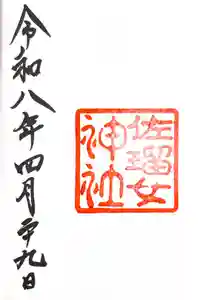 佐瑠女
神社
令和八年四月廾九日